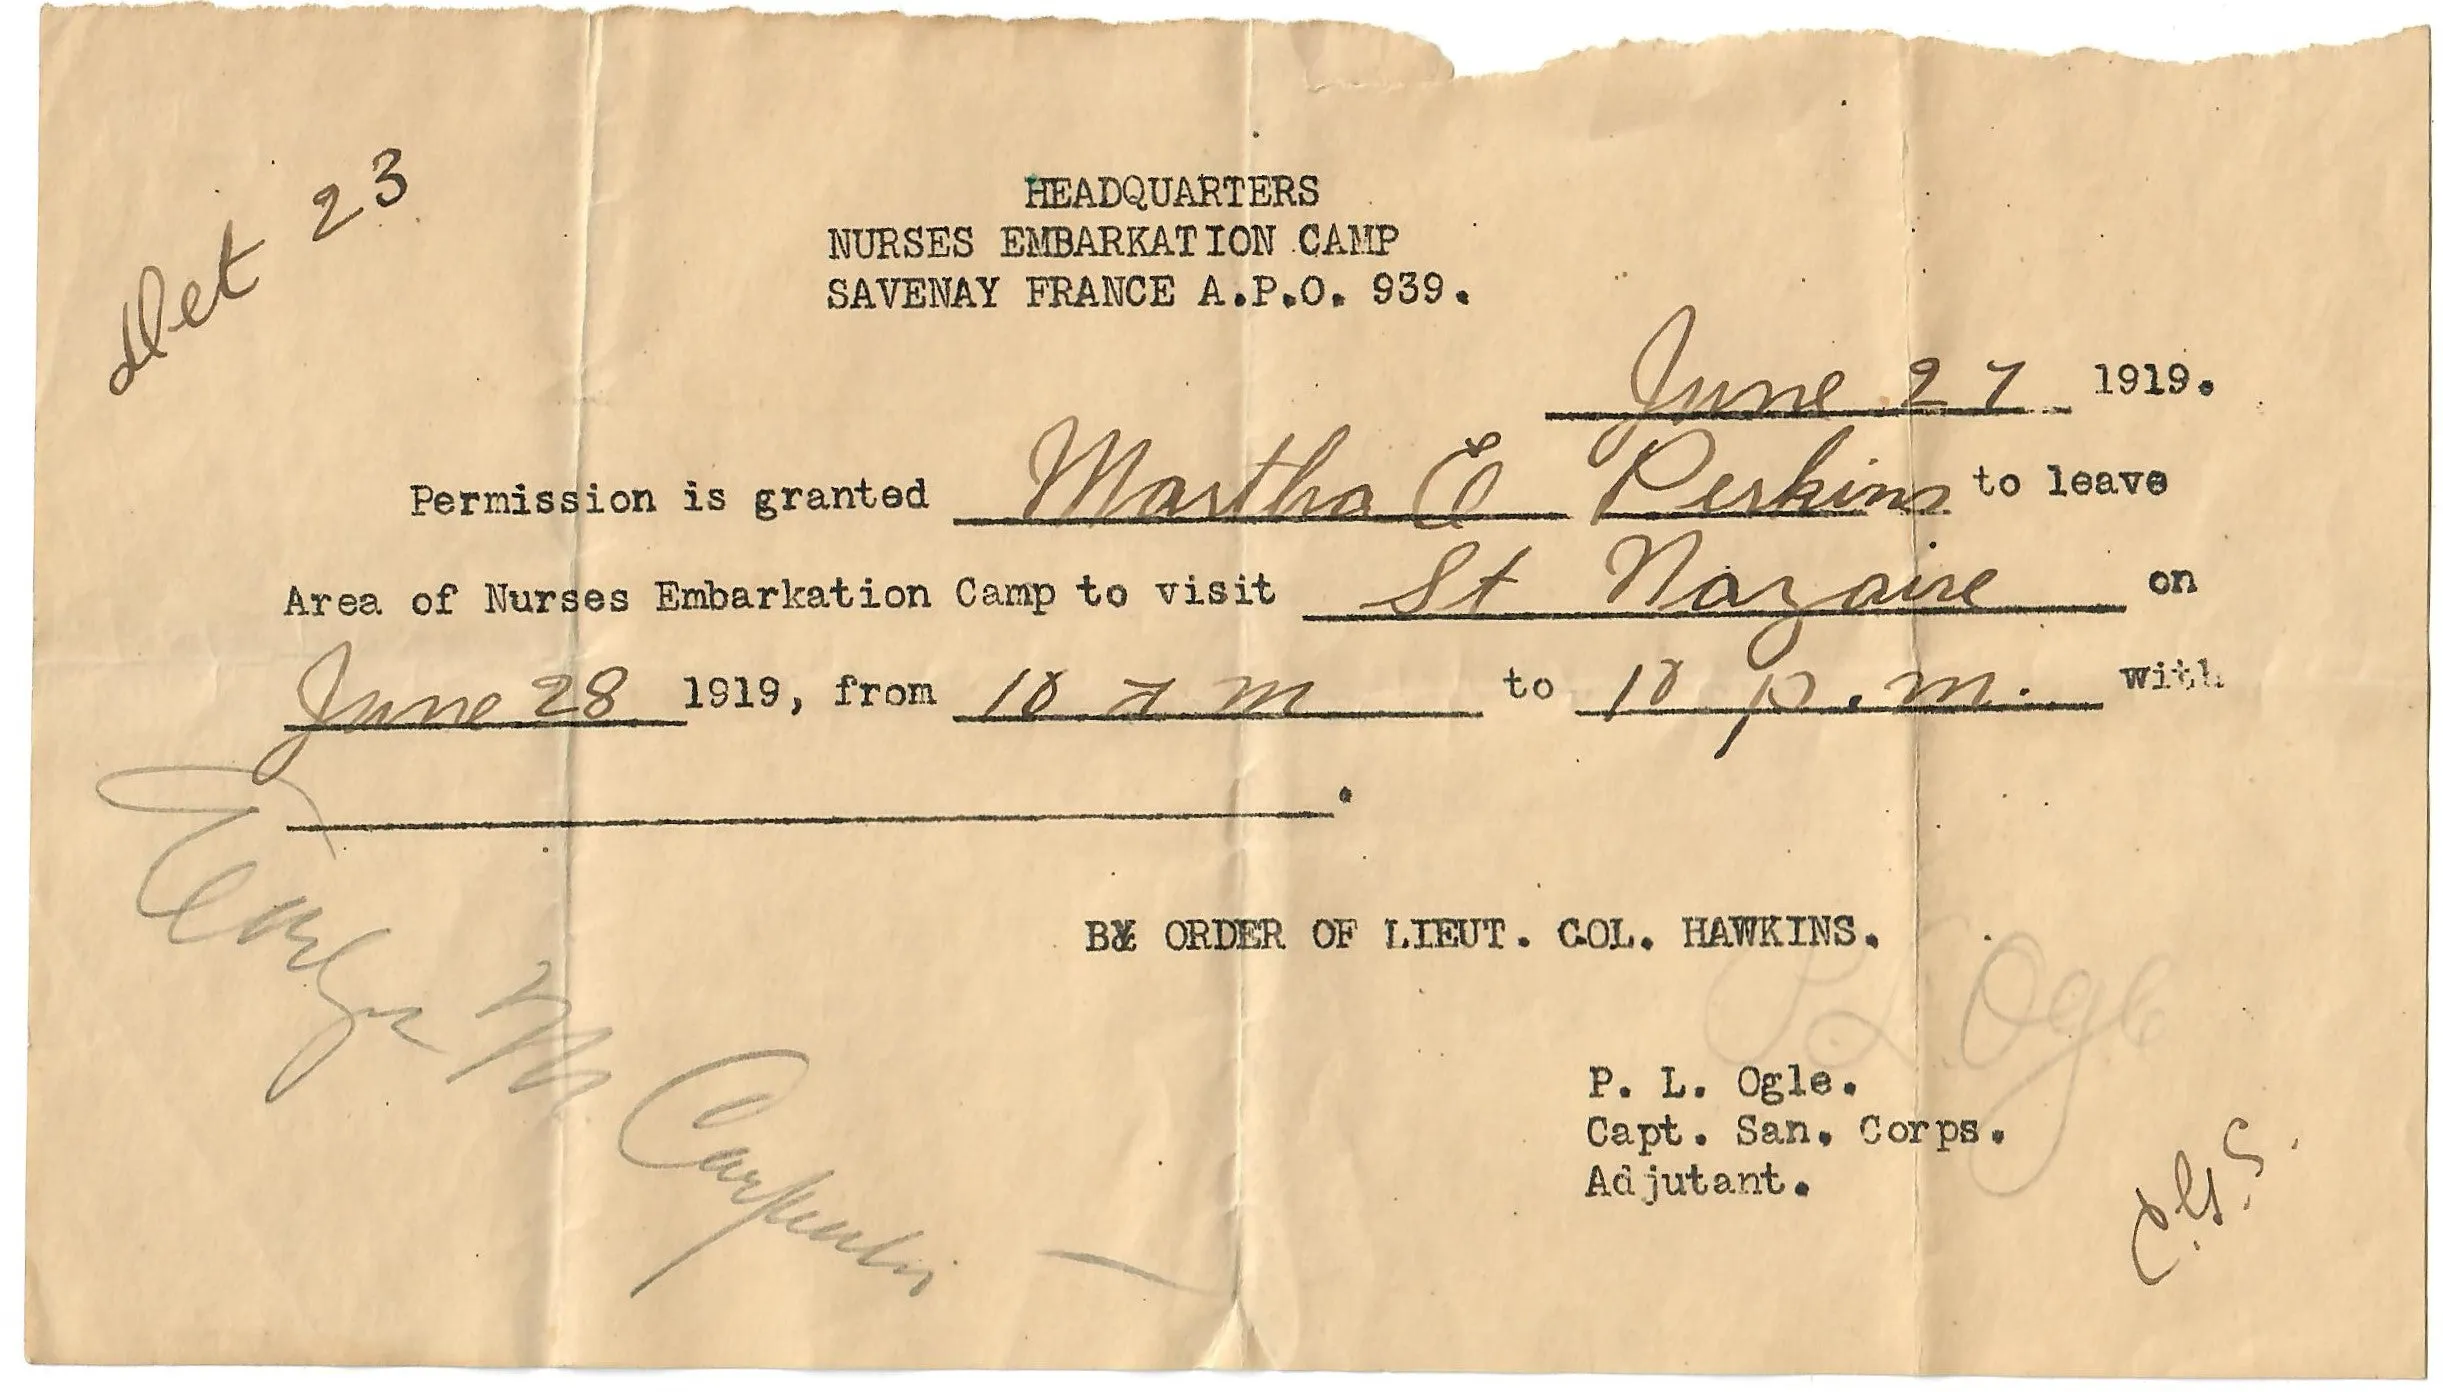 Det 23
HEADQUARTERS
NURSES EMBARKATION CAMP
SAVENAY FRANCE A.P.O. 939.
June 27 1919.
Permission is granted Martha E Perkins to leave
Area of Nurses Embarkation Camp to visit St Nazaire on
June 28 1919, from 10 a m to 10 p.m. with
.
BY ORDER OF LIEUT. COL. HAWKINS.
P L Ogle
P. L. Ogle.
Capt. San. Corps.
Adjutant.
M Carpenter